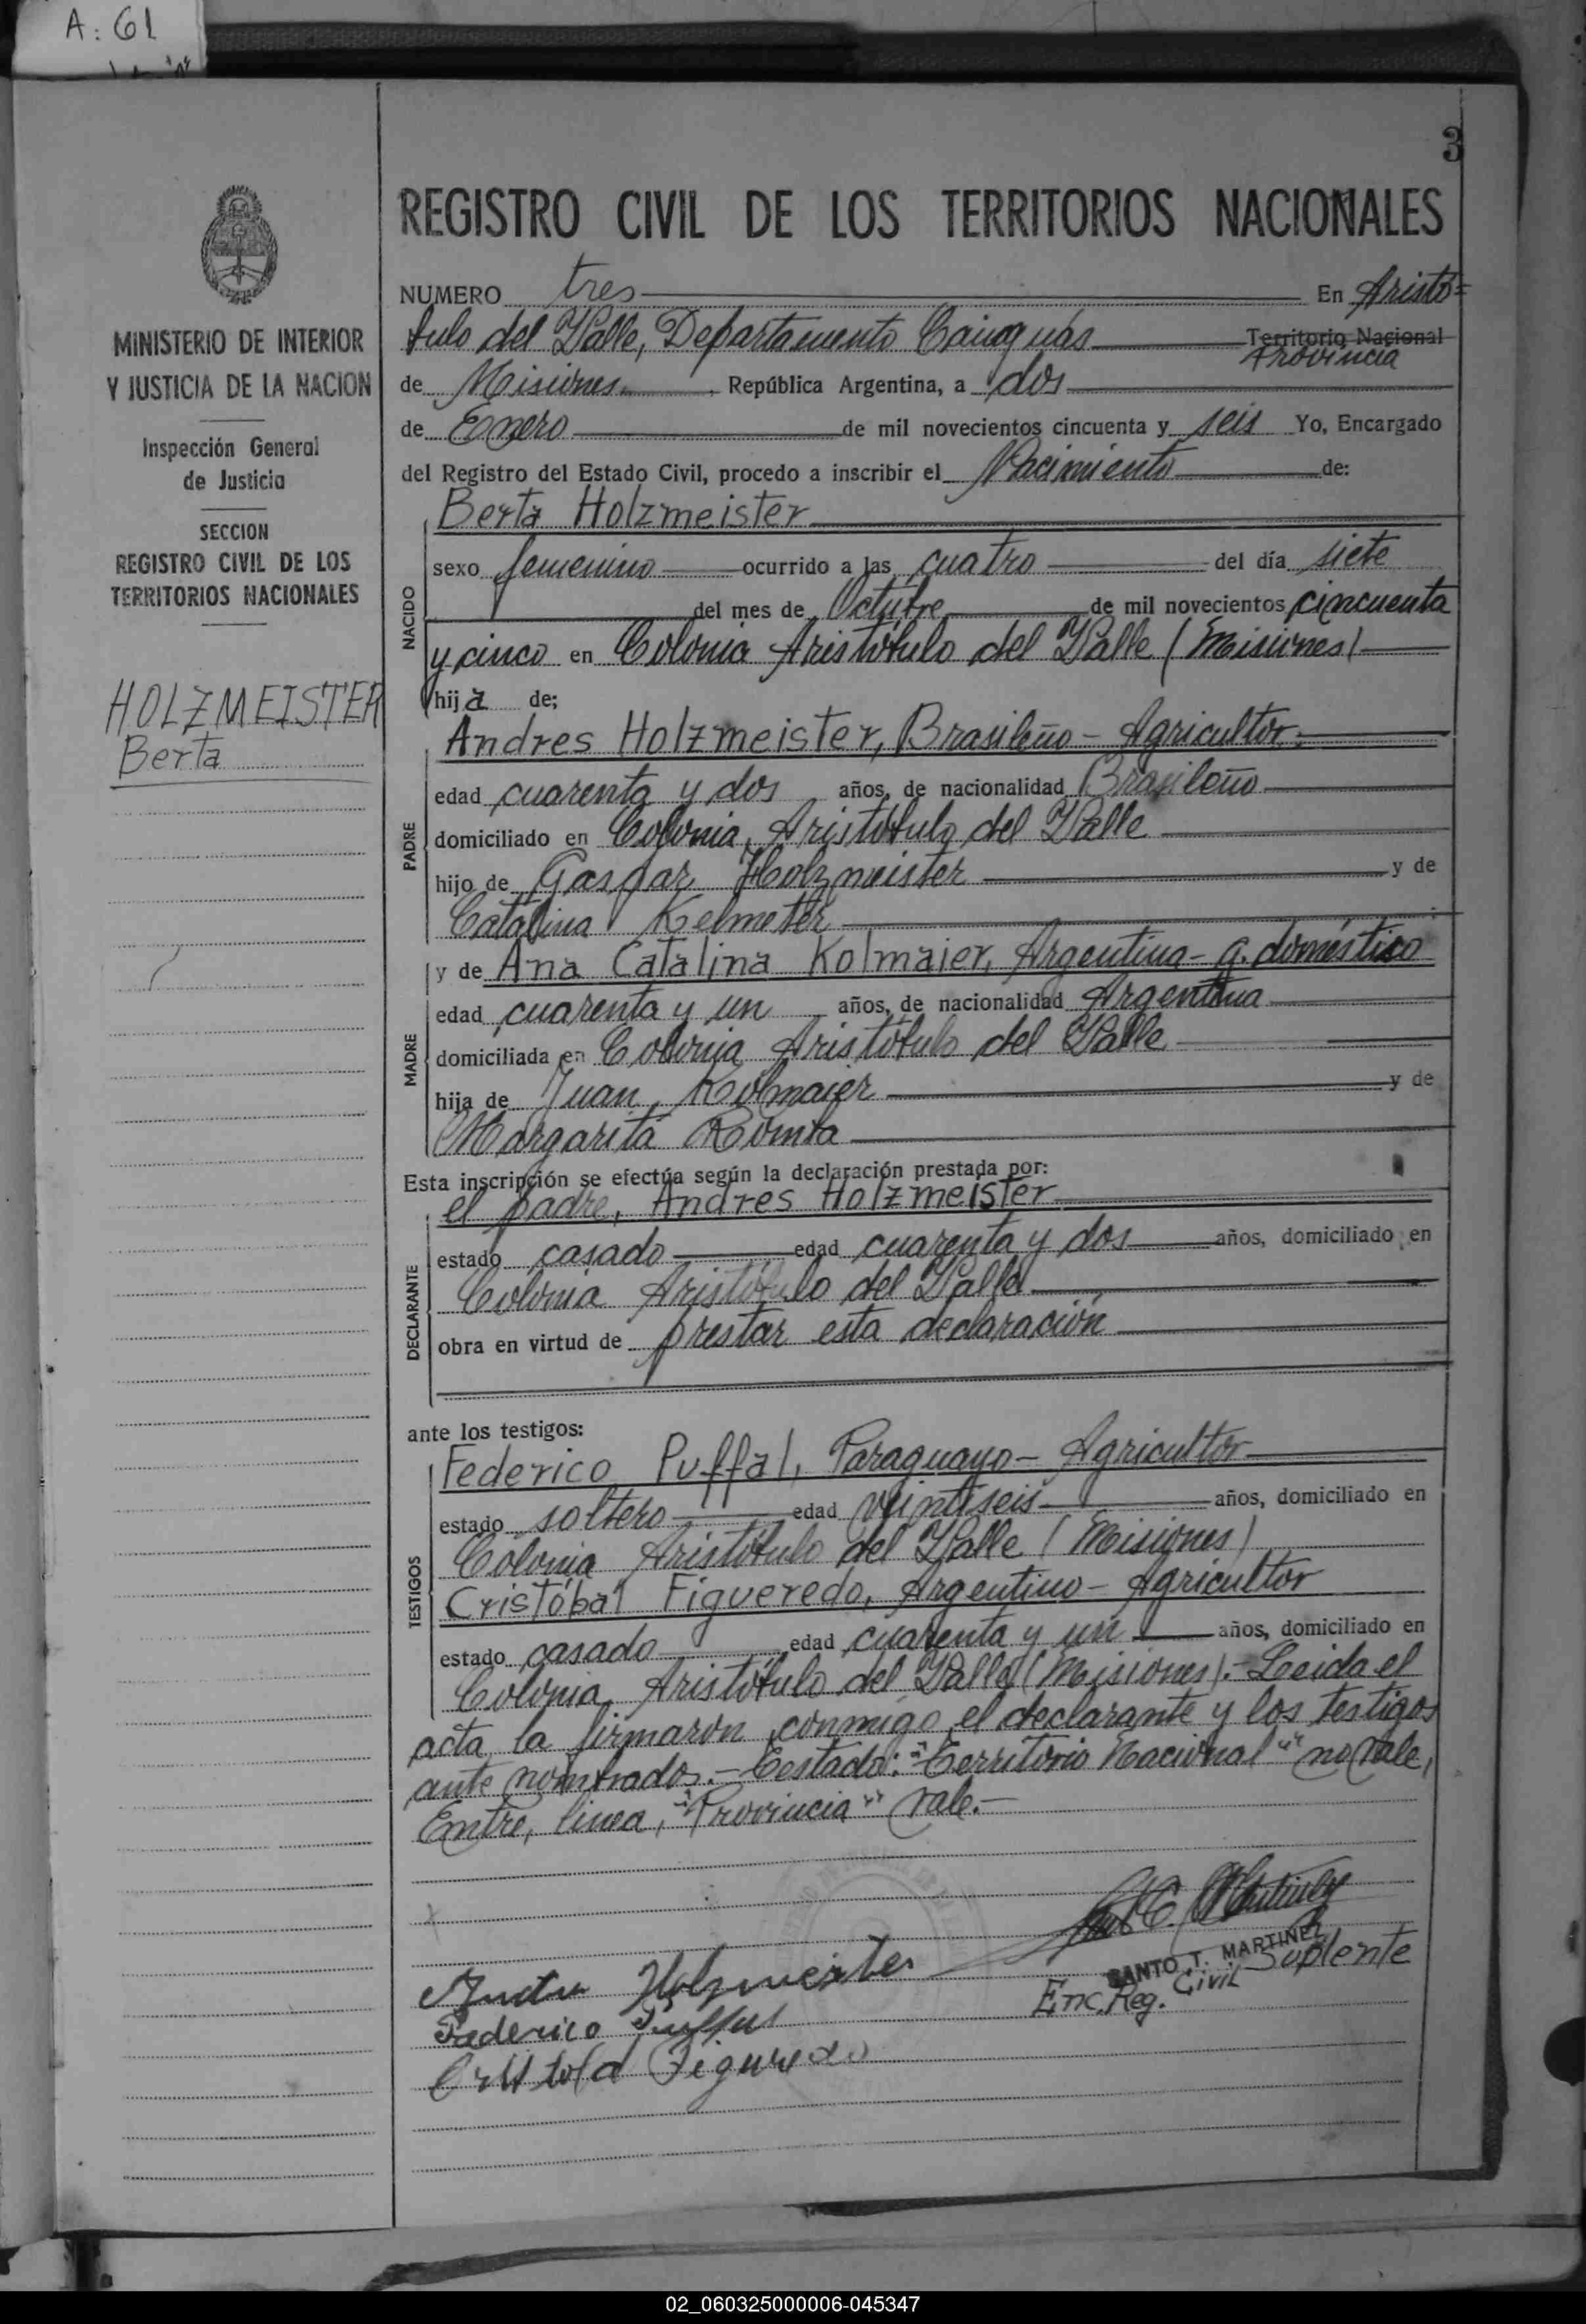 A: 61
3
MINISTERIO DE INTERIOR
Y JUSTICIA DE LA NACION
Inspección General
de Justicia
SECCION
REGISTRO CIVIL DE LOS
TERRITORIOS NACIONALES
HOLZMEISTER
Berta
REGISTRO CIVIL DE LOS TERRITORIOS NACIONALES
NUMERO tres En Aristó=
tulo del Valle, Departamento Cainguás Territorio Nacional
Provincia
de Misiones República Argentina, a dos
de Enero de mil novecientos cincuenta y seis Yo, Encargado
del Registro del Estado Civil, procedo a inscribir el Nacimiento de:
NACIDO
Berta Holzmeister
sexo femenino ocurrido a las cuatro del día siete
del mes de Octubre de mil novecientos cincuenta
y cinco en Colonia Aristóbulo del Valle (Misiones)
hija de;
PADRE
Andres Holzmeister, Brasileño - Agricultor.
edad cuarenta y dos años, de nacionalidad Brasileño
domiciliado en Colonia Aristóbulo del Valle
hijo de Gaspar Holzmeister y de
Catalina Kelmeter
MADRE
y de Ana Catalina Kolmaier, Argentina - q. doméstico
edad cuarenta y un años, de nacionalidad Argentina
domiciliada en Colonia Aristóbulo del Valle
hija de Juan Kolmaier y de
Margarita
Esta inscripción se efectúa según la declaración prestada por:
DECLARANTE
el padre, Andres Holzmeister
estado casado edad cuarenta y dos años, domiciliado en
Colonia Aristóbulo del Valle
obra en virtud de prestar esta declaración
ante los testigos:
TESTIGOS
Federico Puffal, Paraguayo - Agricultor
estado soltero edad veintiseis años, domiciliado en
Colonia Aristóbulo del Valle (Misiones)
Cristóbal Figueredo, Argentino - Agricultor
estado casado edad cuarenta y un años, domiciliado en
Colonia Aristóbulo del Valle (Misiones).- Leida el
acta la firmaron conmigo el declarante y los testigos
ante nombrados.- Testado: "Territorio Nacional" no vale,
Entre, linea, "Provincia" vale.-
SANTO T. MARTINEZ
Enc. Reg. Civil Suplente
Holzmeister
Federico Puffal
Cristobal Figueredo
02_060325000006-045347